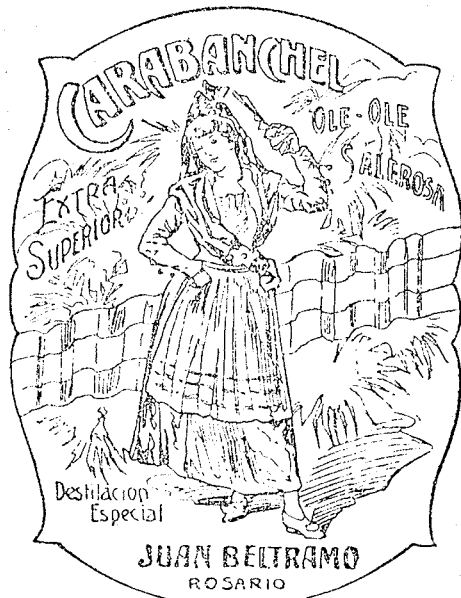 CARABANCHEL
OLE-OLE
SALEROSA
EXTRA
SUPERIOR
Destilacion
Especial
JUAN BELTRAMO
ROSARIO